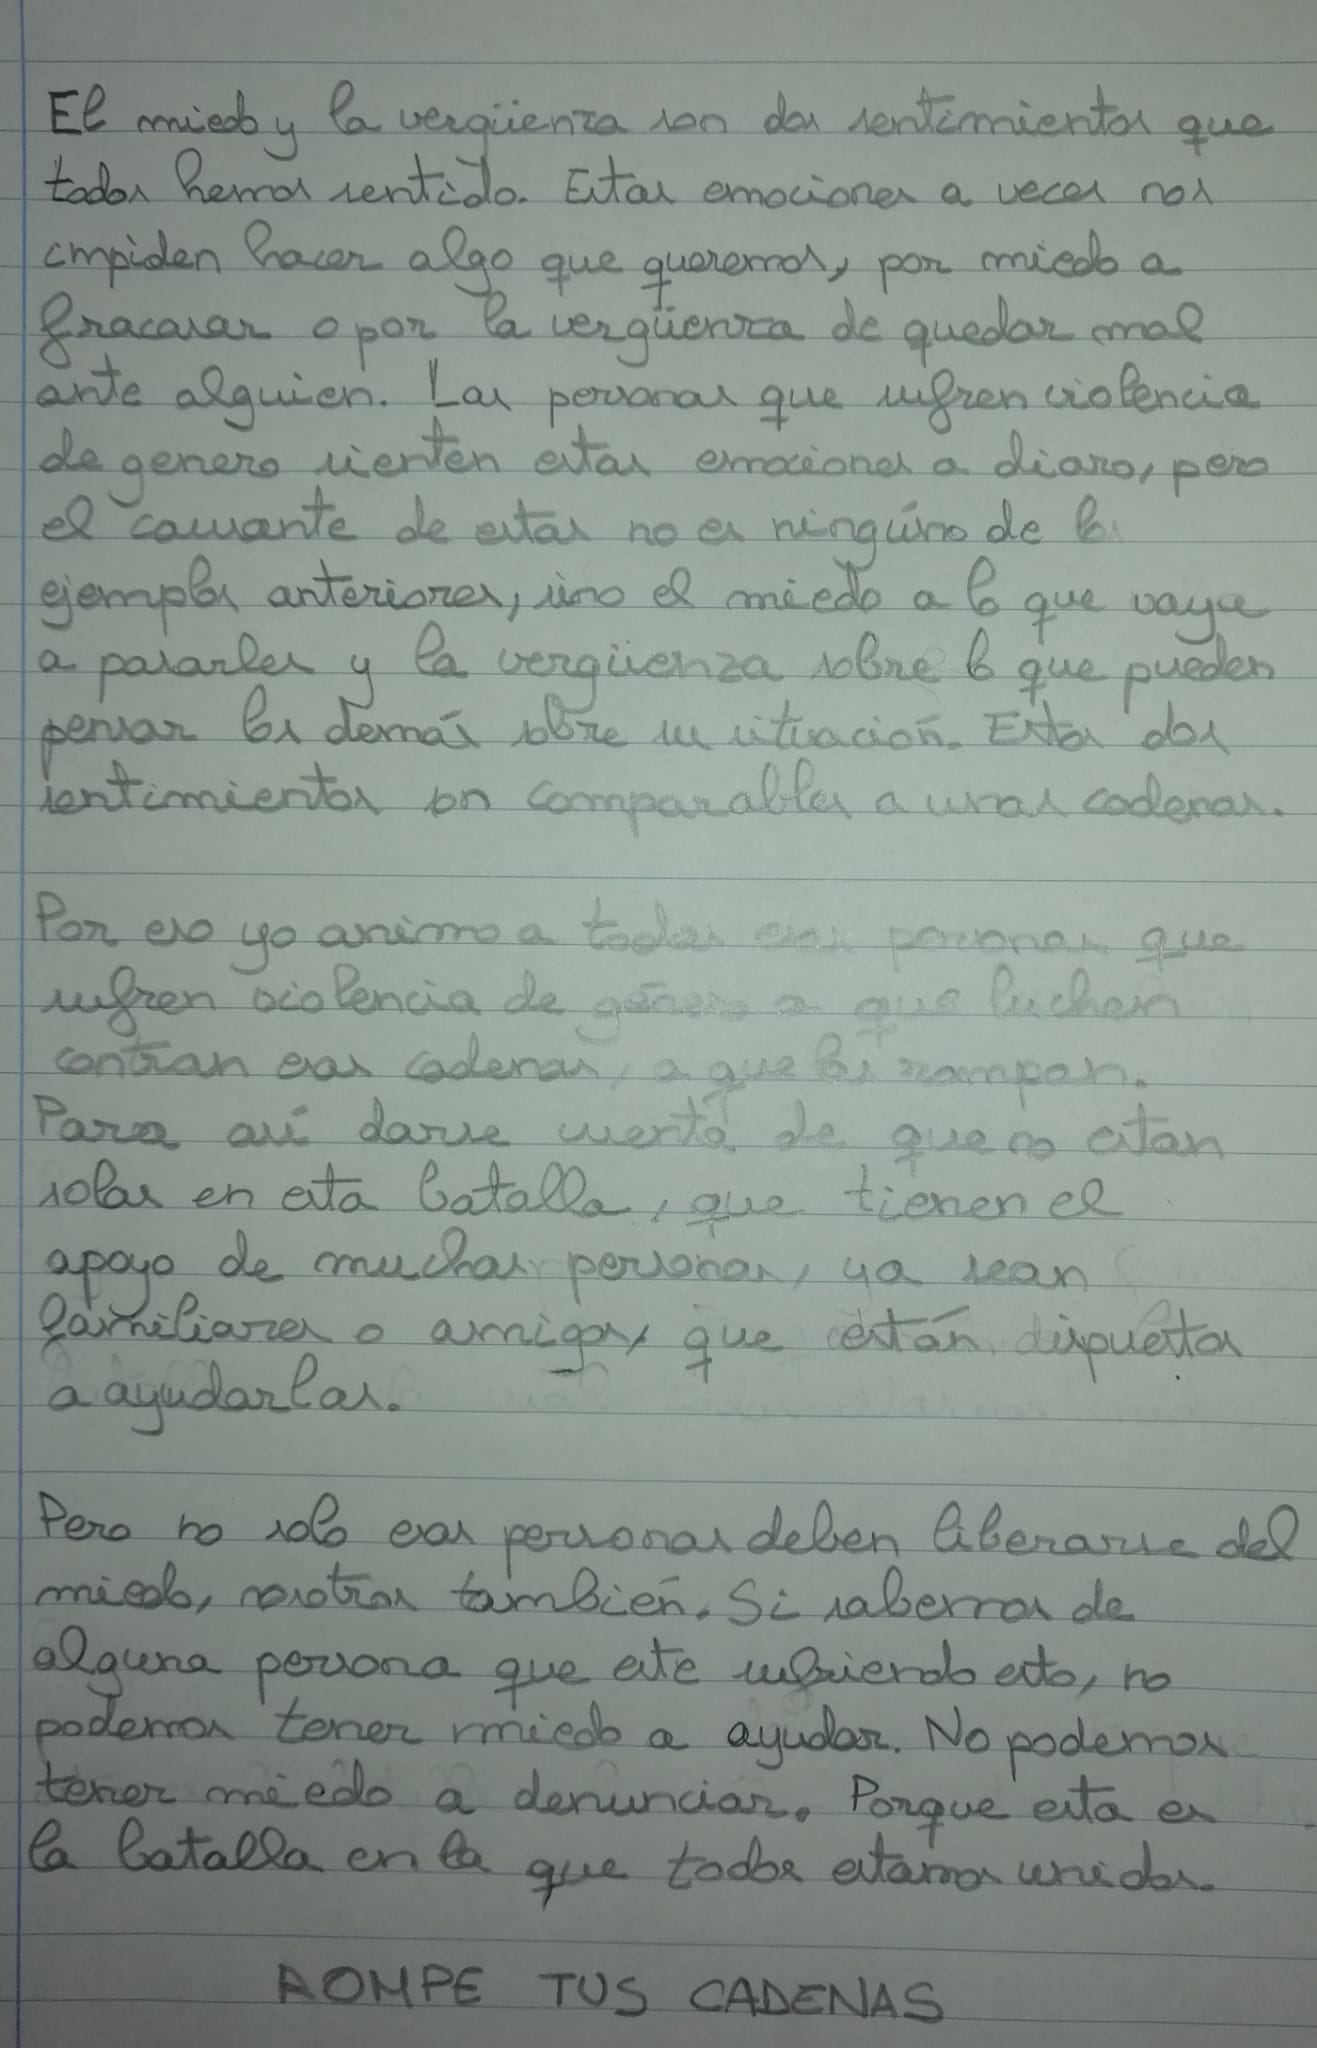 El miedo y la vergüenza son dos sentimientos que
todos hemos sentido. Estas emociones a veces nos
impiden hacer algo que queremos, por miedo a
fracasar o por la vergüenza de quedar mal
ante alguien. Las personas que sufren violencia
de genero sienten estas emociones a diaro, pero
el causante de estas no es ningúno de los
ejemplos anteriores, sino el miedo a lo que vaya
a pasarles y la vergüenza sobre lo que pueden
pensar los demás sobre su situación. Estos dos
sentimientos son comparables a unas cadenas.
Por eso yo animo a todas esas personas que
sufren violencia de género a que luchen
contran esas cadenas, a que las rompan.
Para así darse cuenta de que no estan
solas en esta batalla, que tienen el
apoyo de muchas personas, ya sean
familiares o amigos, que están dispuestos
a ayudarlas.
Pero no solo esas personas deben liberarse del
miedo, nosotros también. Si sabemos de
alguna persona que este sufriendo esto, no
podemos tener miedo a ayudar. No podemos
tener miedo a denunciar. Porque esta es
la batalla en la que todos estamos unidos.
ROMPE TUS CADENAS